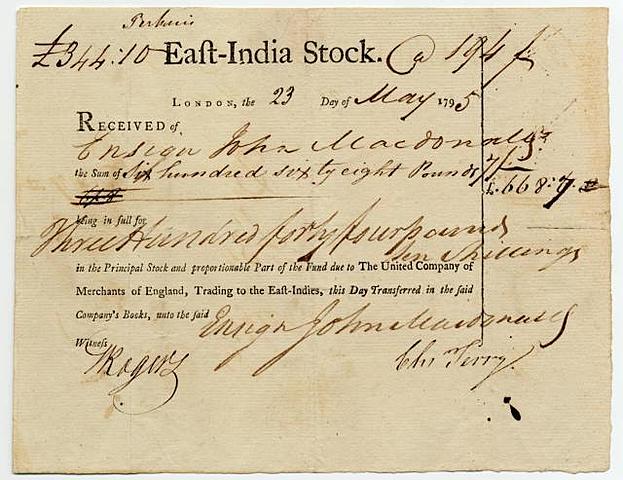 Perkins
£344:10 East-India Stock. @ 194
LONDON, the 23 Day of May 1795
RECEIVED of
Ensign John Macdonald
the Sum of Six hundred sixty eight Pounds 7/ £. 668:7
being in full for
Three Hundred forty four pounds
ten Shillings
in the Principal Stock and proportionable Part of the Fund due to The United Company of
Merchants of England, Trading to the East-Indies, this Day Transferred in the said
Company's Books, unto the said Ensign John Macdonald
Witness
Rogers Chr Terry